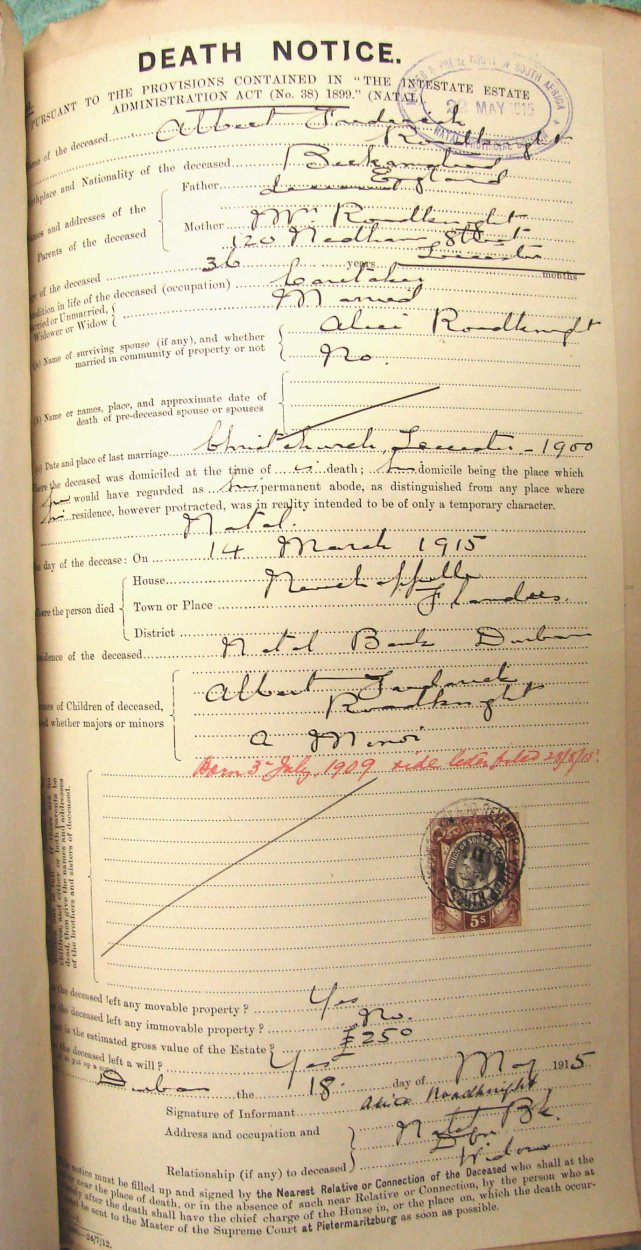 DEATH NOTICE.
PURSUANT TO THE PROVISIONS CONTAINED IN "THE INTESTATE ESTATE
ADMINISTRATION ACT (No. 38) 1899." (NATAL
22 MAY 1915
of the deceased Albert Frederick
Roadknight
Birthplace and Nationality of the deceased
England
Names and addresses of the
Parents of the deceased
Father
Mother Mrs Roadknight
120 Street
Leicester
of the deceased 36 years months
Condition in life of the deceased (occupation) Caretaker
Married or Unmarried,
Widower or Widow Married
(a) Name of surviving spouse (if any), and whether
married in community of property or not
Alice Roadknight
No.
(b) Name or names, place, and approximate date of
death of pre-deceased spouse or spouses
(c) Date and place of last marriage Christchurch, Leicester - 1900
Where the deceased was domiciled at the time of his death; his domicile being the place which
he would have regarded as his permanent abode, as distinguished from any place where
his residence, however protracted, was in reality intended to be of only a temporary character.
Natal.
day of the decease: On 14 March 1915
Where the person died
House
Town or Place Flanders.
District
Residence of the deceased Natal Bank Durban
Names of Children of deceased,
and whether majors or minors
Albert Frederick
Roadknight
a Minor
Born 3rd July 1909 vide letter filed 28/5/15.
children, and either or both parents be
dead, then give the names and addresses
of the brothers and sisters of deceased.
5s
the deceased left any movable property? Yes
the deceased left any immovable property? No.
is the estimated gross value of the Estate? £250
the deceased left a will? Yes
Durban the 18. day of May 1915
Signature of Informant Alice Roadknight
Address and occupation and
Natal Bk.
Dbn
Relationship (if any) to deceased Widow
notice must be filled up and signed by the Nearest Relative or Connection of the Deceased who shall at the
or near the place of death, or in the absence of such near Relative or Connection, by the person who at
after the death shall have the chief charge of the House in, or the place on, which the death occur-
be sent to the Master of the Supreme Court at Pietermaritzburg as soon as possible.
24/7/12.